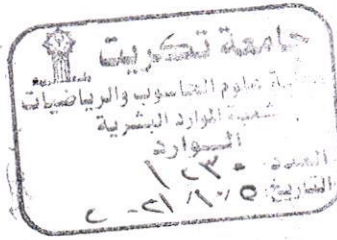 جامعة تكريت
كلية علوم الحاسوب والرياضيات
شعبة الموارد البشرية
الـــواردة
العدد: ١٢٣٠
التاريخ: ٥ /١٠/ ٢٠٢١